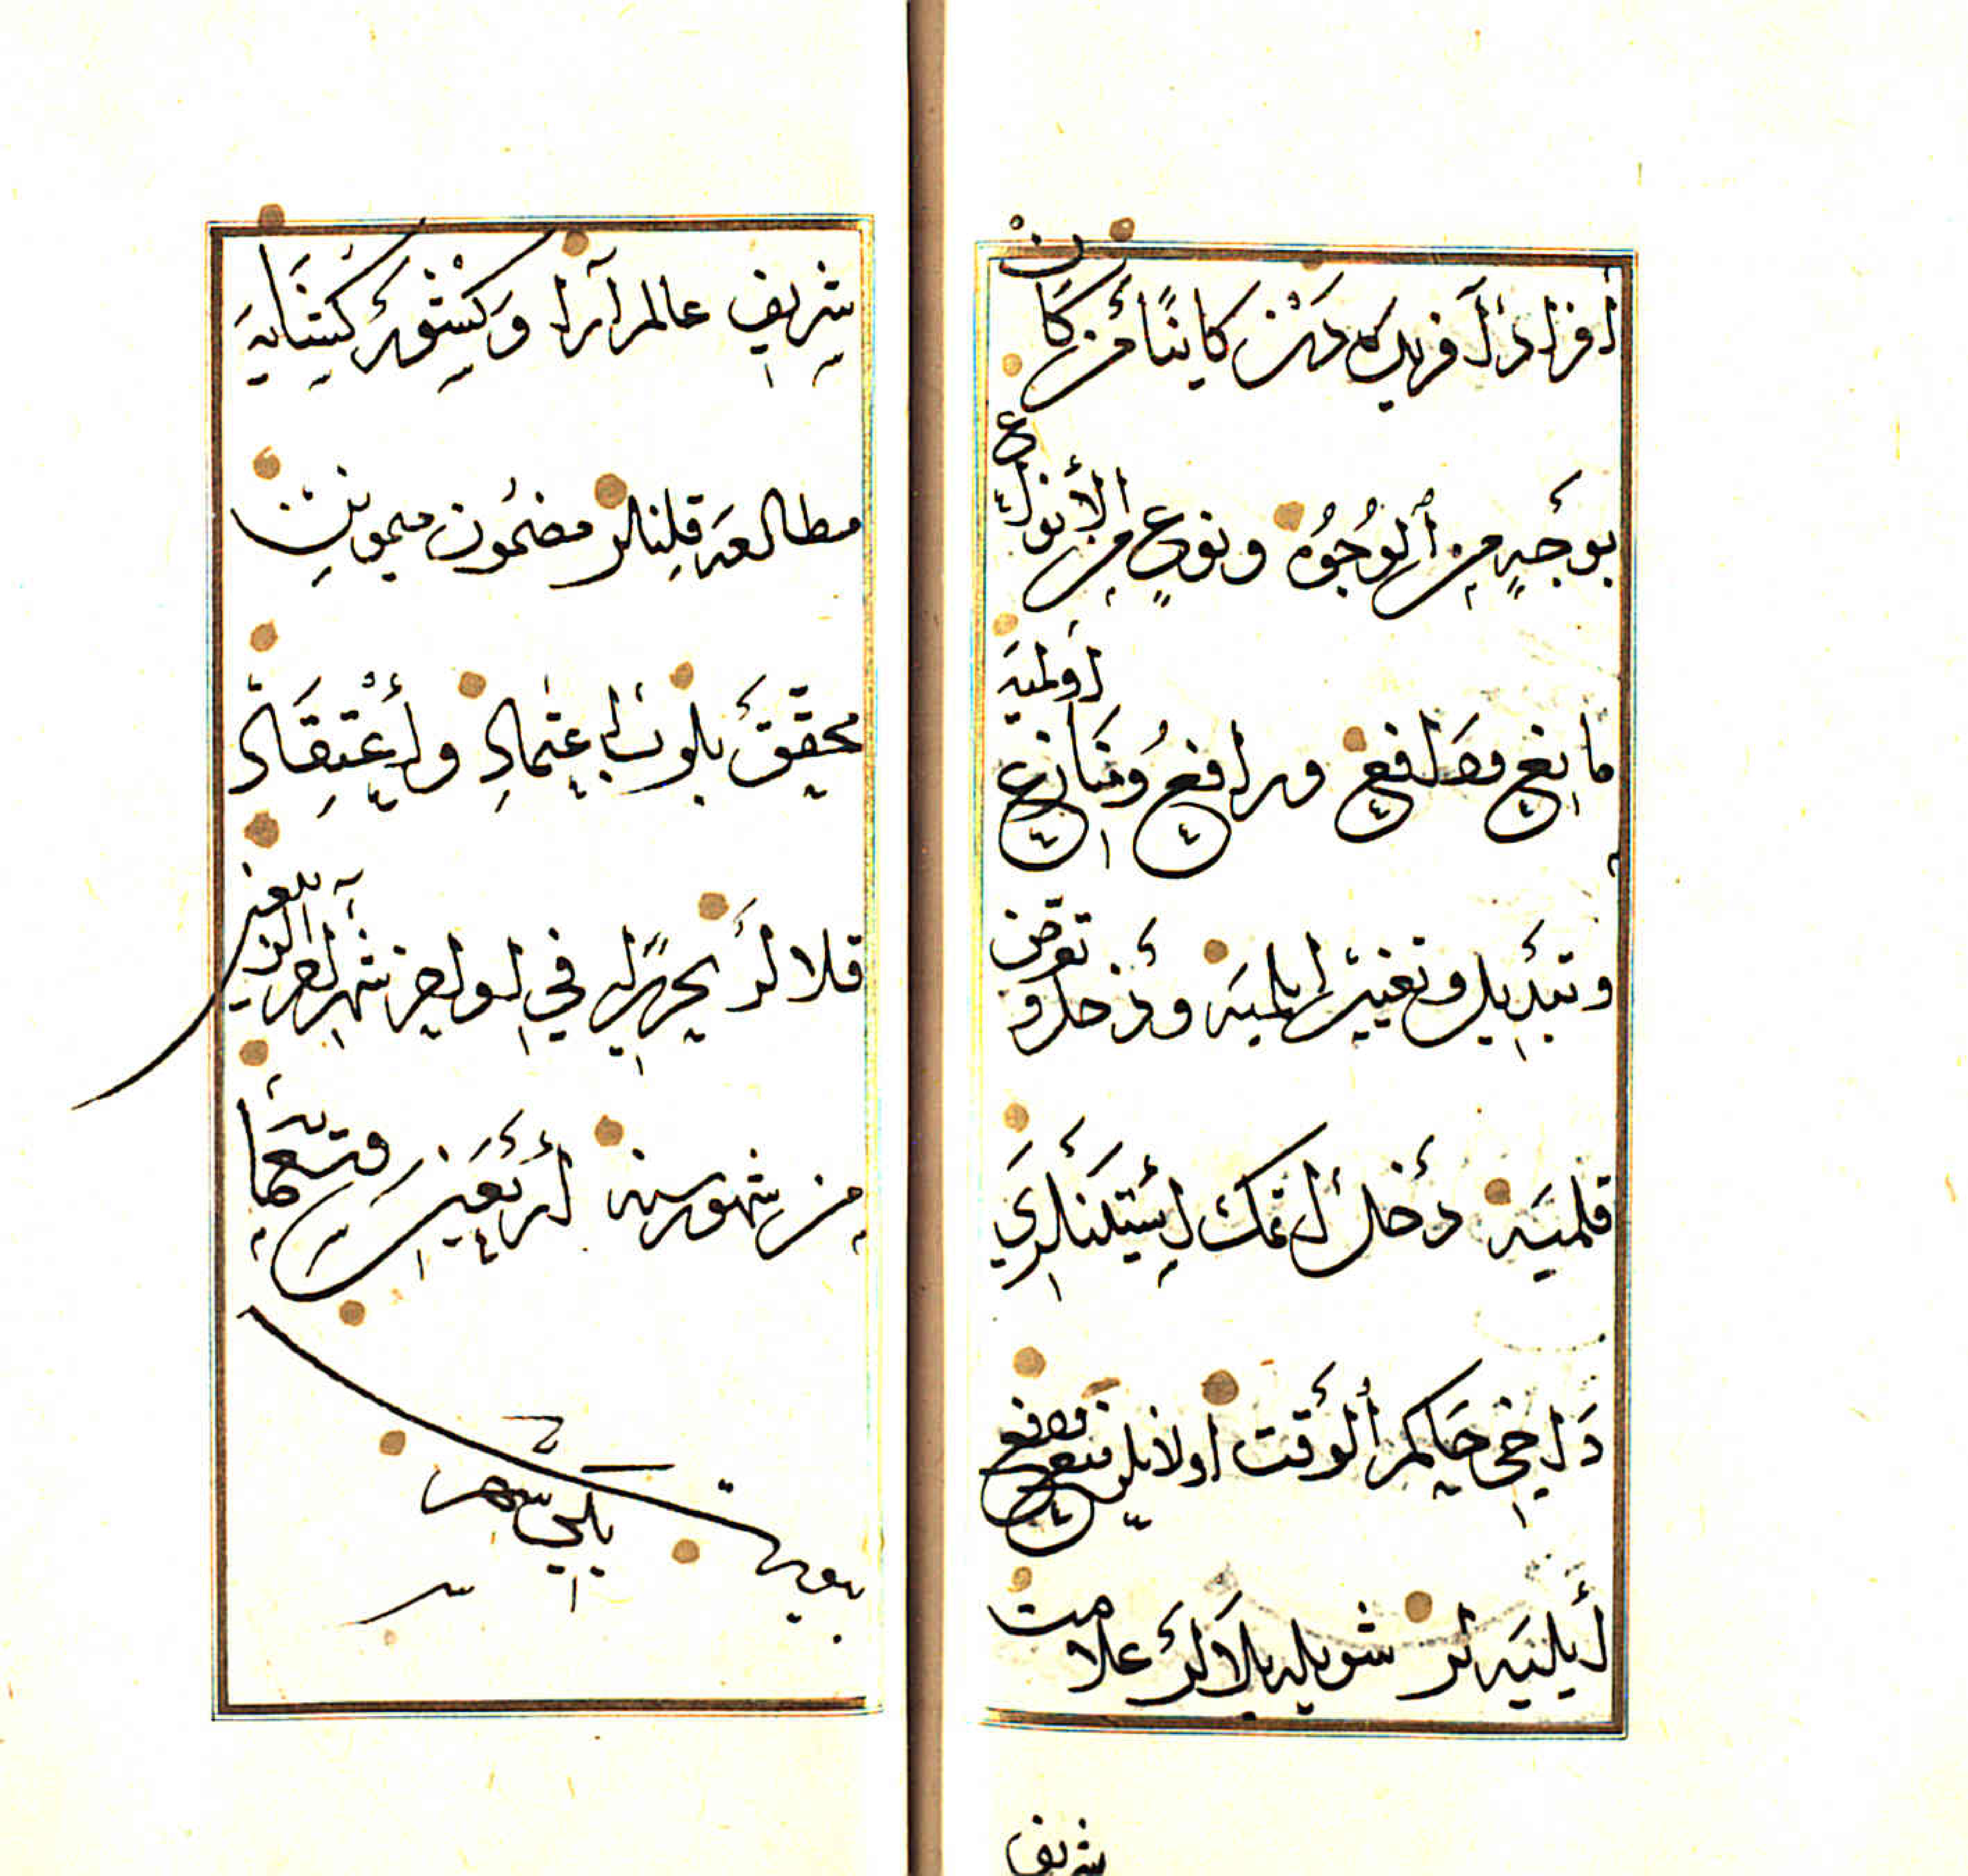 افراد آفریده دن كاینًا من كان
بوجهٍ من الوجوه و نوعٍ من الانواع
مانع و دافع و رافع و منازع اولمیه
و تبدیل و تغییر ایلمیه و دخل و تعرض
قلمیه دخل اتمك ایستینلری
داخی حاكم الوقت اولانلر منع و دفع
ایلیه لر شویله بیلالر علامت
شریف
شریف عالم آرا و كیتی كشایه
مطالعه قلنلر مضمون میمونن
محقق بلوب اعتماد و اعتقاد
قلالر تحریرا فی اواخر شهر
من شهور سنه اربعین و تسعمایة